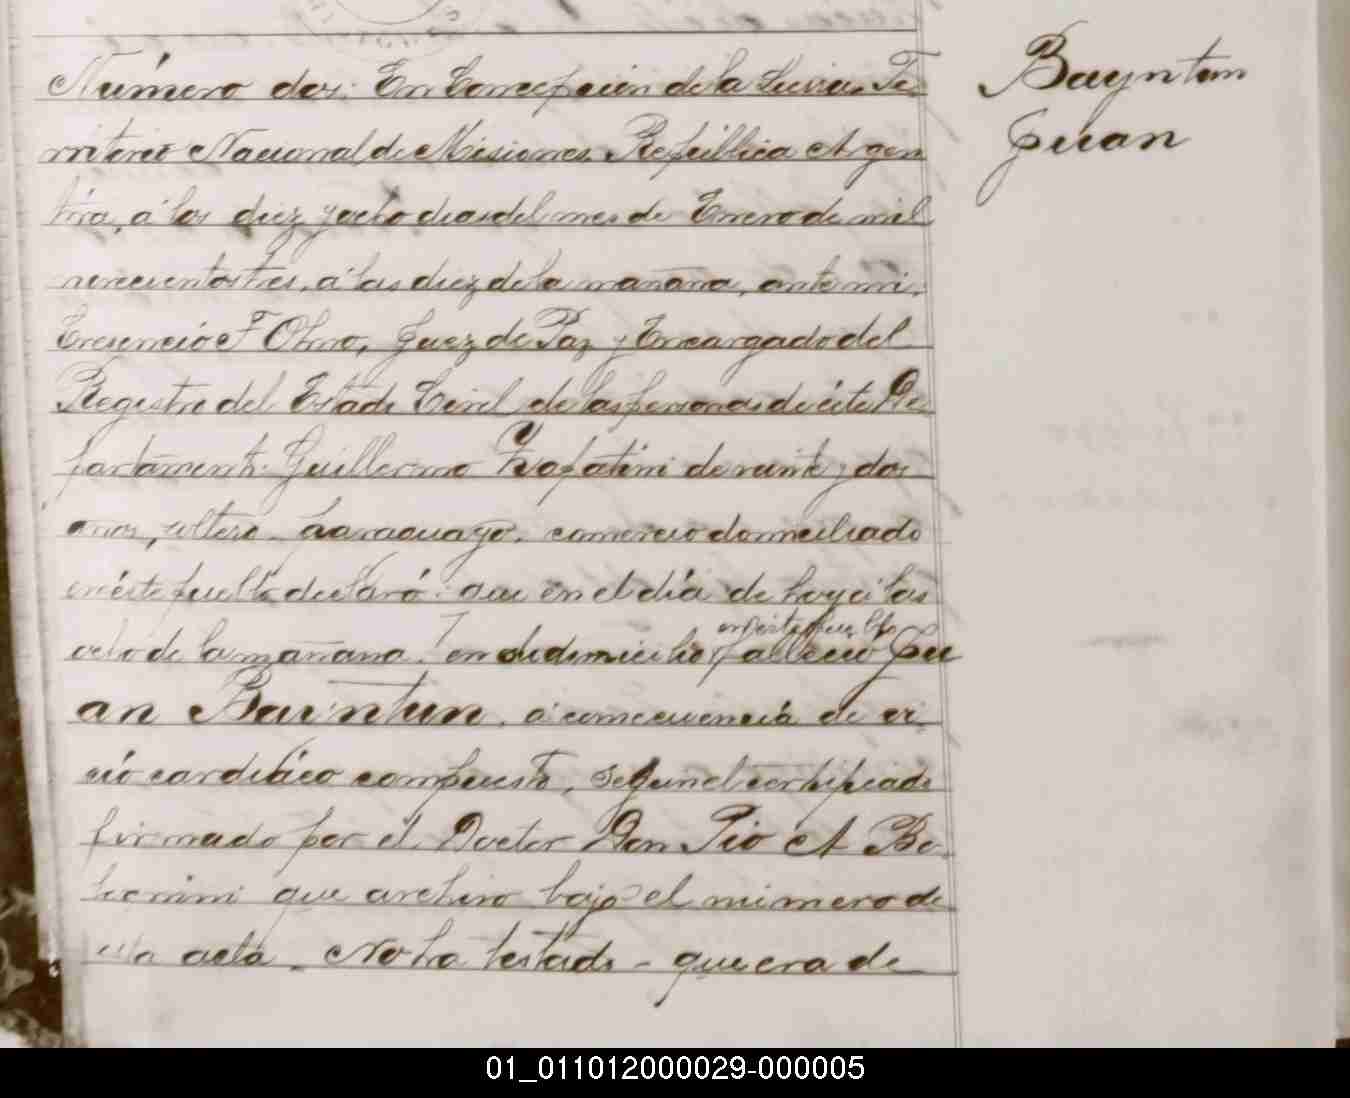 Número dos: En Concepcion de la Sierra, Te-
rritorio Nacional de Misiones República Argen
tina, á los diez y ocho dias del mes de Enero de mil
novecientos tres, á las diez de la mañana, ante mi,
Cresencio F Olmo, Juez de Paz y Encargado del
Registro del Estado Civil de las personas de éste De
partamento Guillermo de veinte y dos
años, soltero, paraguayo, comercio domiciliado
en éste pueblo declaró: que en el día de hoy á las
en éste pueblo
ocho de la mañana, en su domicilio falleció Ju
an Baintun, á consecuencia de vi-
cio cardiáco compuesto, segun el certificado
firmado por el Doctor Don Pio A Be-
que archivo bajo el número de
esta acta. No ha testado - que era de
Bayntun
Juan
01_011012000029-000005